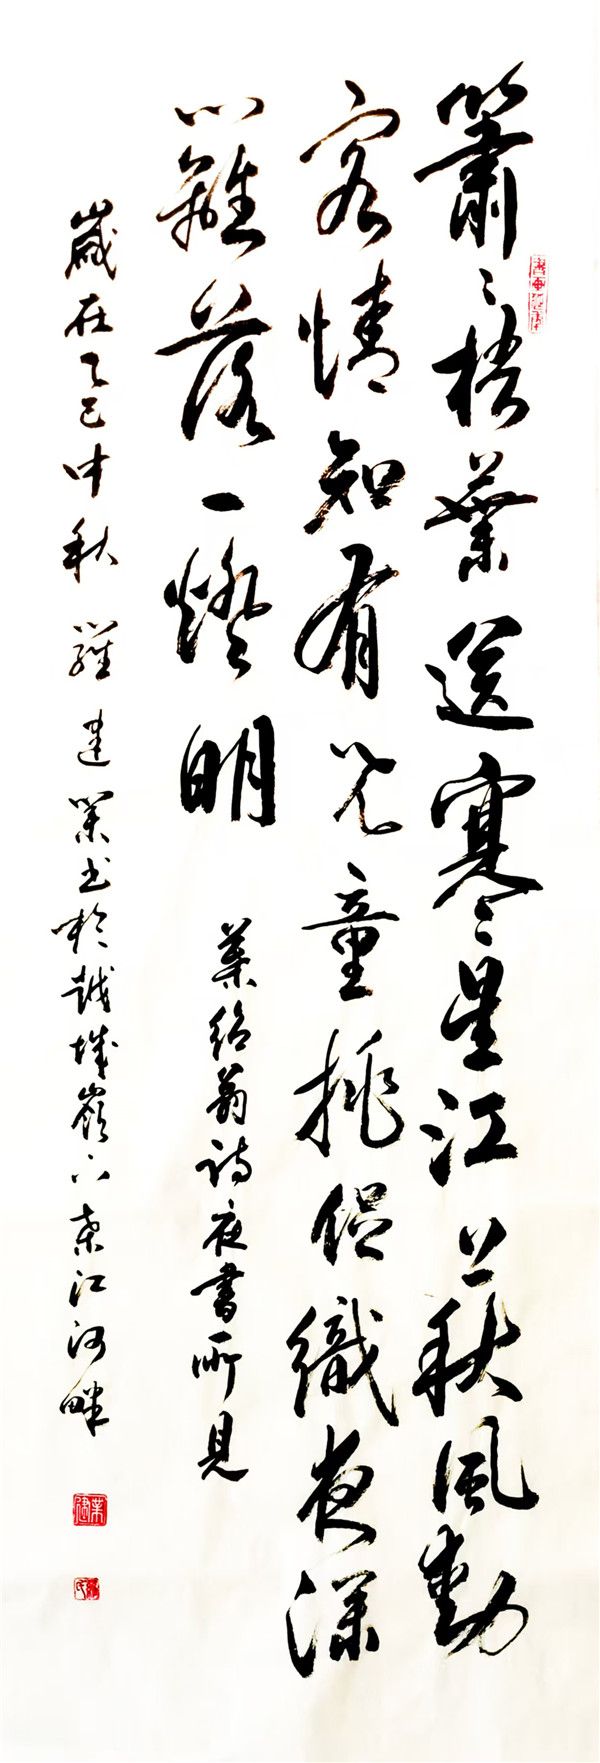 簫〻梧葉送寒星江上秋風動
客情知有兒童挑促織夜深
籬落一燈明
葉紹翁詩夜書所見
歲在乙巳中秋羅建業書於越城嶺下桑江河畔